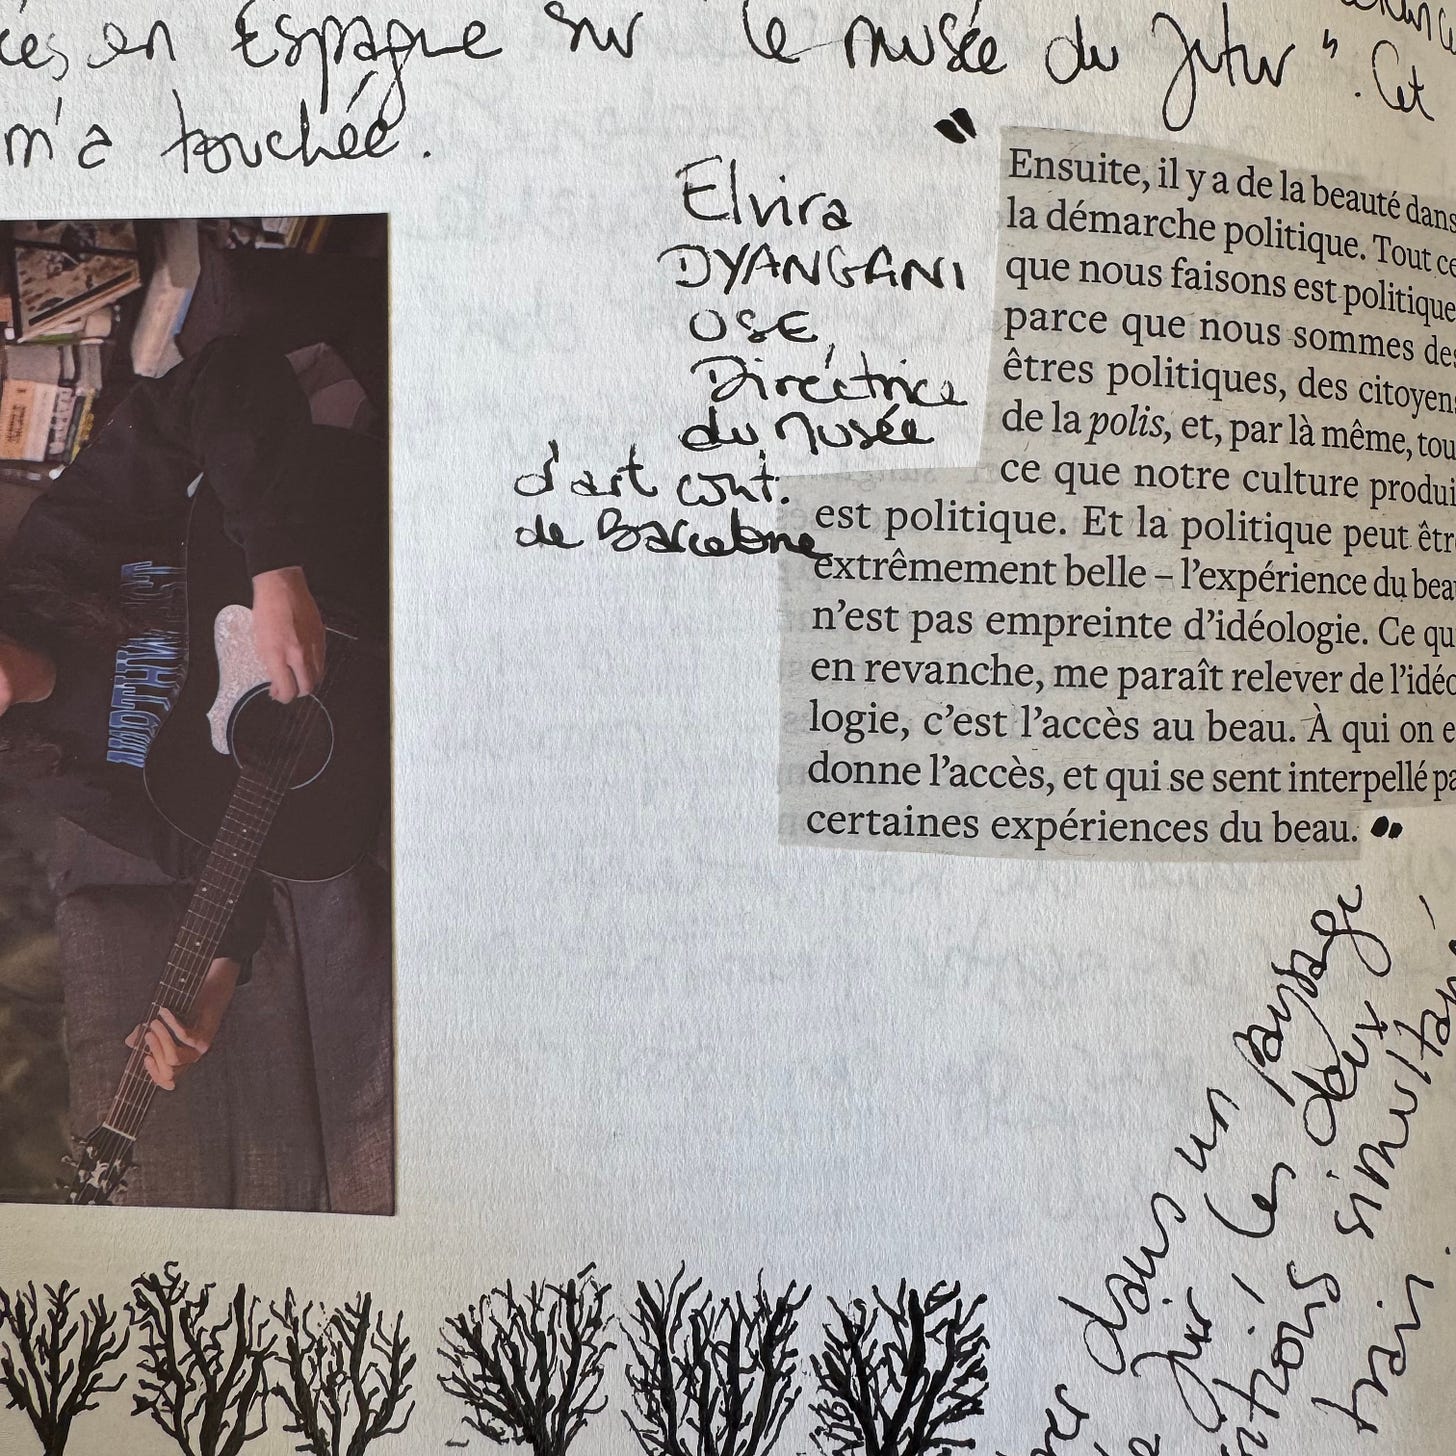 en Espagne sur "le musée du futur". Cet
m'a touchée.
Elvira
DYANGANI
OSE,
Diréctrice
du Musée
d'art cont.
de Barcelone
" Ensuite, il y a de la beauté dans
la démarche politique. Tout ce
que nous faisons est politique
parce que nous sommes des
êtres politiques, des citoyens
de la polis, et, par là même, tou
ce que notre culture produi
est politique. Et la politique peut êtr
extrêmement belle – l'expérience du beau
n'est pas empreinte d'idéologie. Ce qu
en revanche, me paraît relever de l'idéo
logie, c'est l'accès au beau. À qui on e
donne l'accès, et qui se sent interpellé pa
certaines expériences du beau. "
dans un paysage
sur les deux
simultané
train